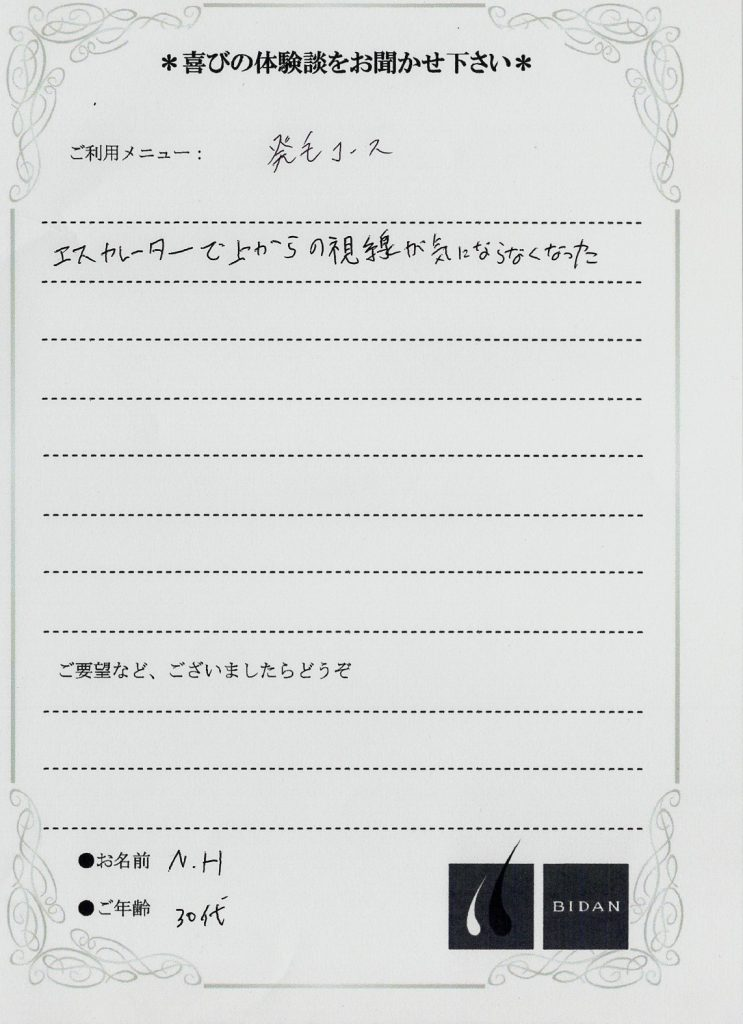 ＊喜びの体験談をお聞かせ下さい＊
ご利用メニュー： 発毛コース
エスカレーターで上からの視線が気にならなくなった
ご要望など、ございましたらどうぞ
●お名前 N.H
●ご年齢 30代
BIDAN